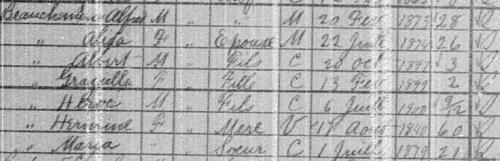 Beauchemin Alfred M " " M 20 Fev 1873 28
" Alida F " Epouse M 22 Juill 1874 26
" Albert M " Fils C 20 Oct 1897 3
" Graciella F " Fille C 13 Fev 1899 2
" Herve M " Fils C 6 Juill 1900 9/12
" Hermine F " Mere V 11 Aout 1840 60
" Maria " " Soeur C 1 Juill 1879 21